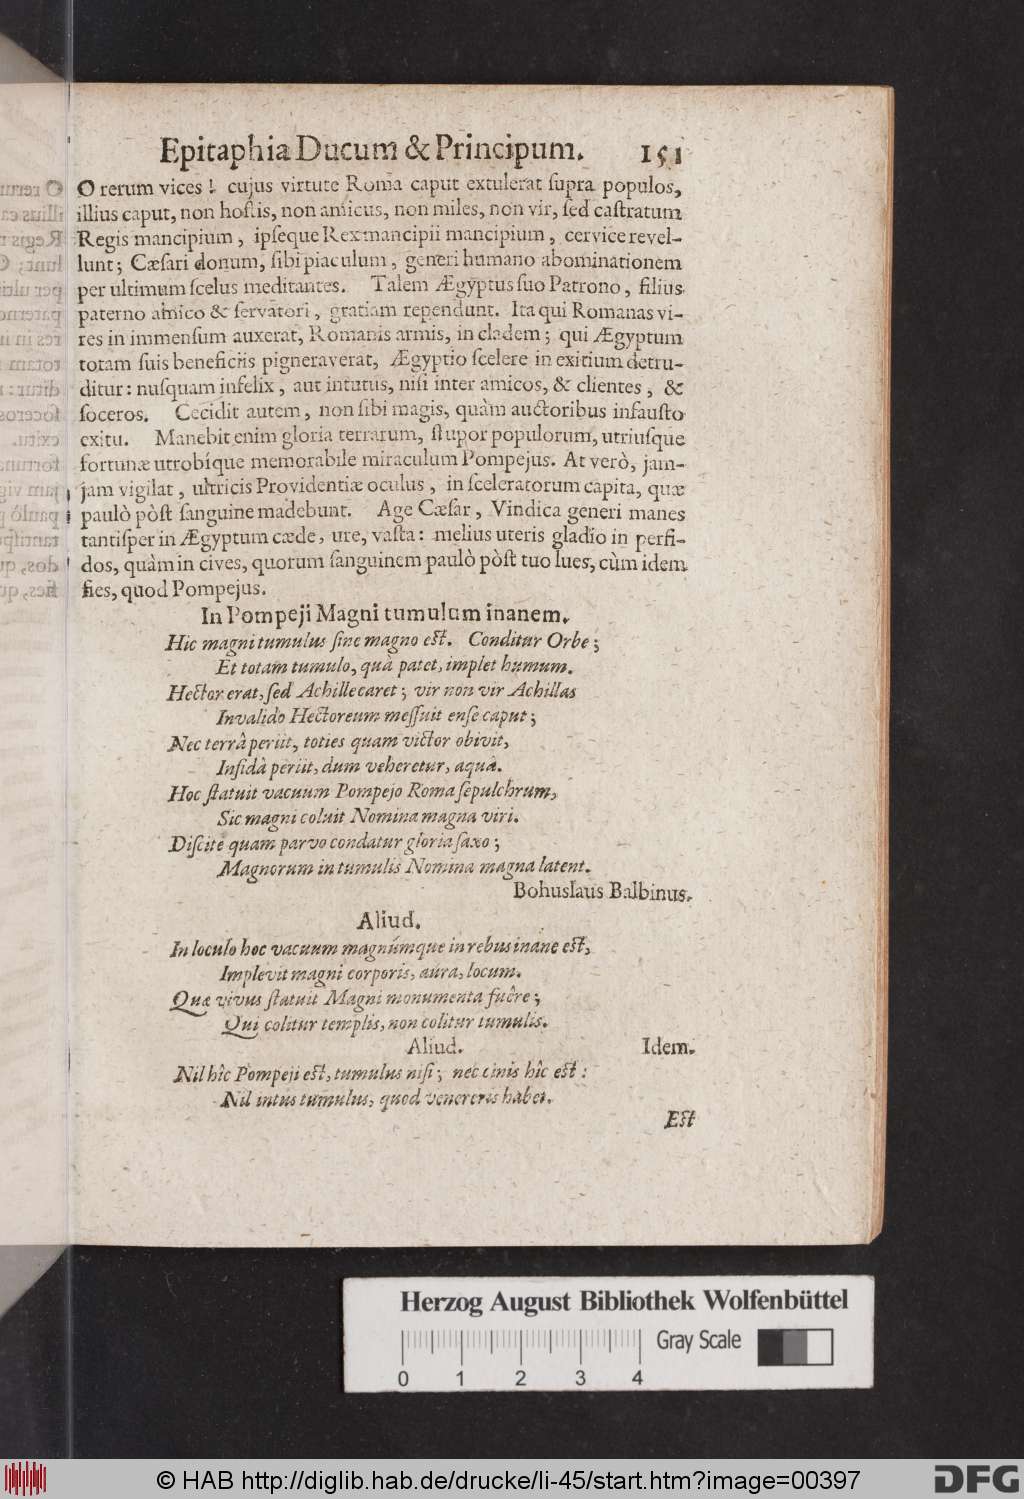 Epitaphia Ducum & Principum. 151
O rerum vices! cujus virtute Roma caput extulerat supra populos,
illius caput, non hostis, non amicus, non miles, non vir, sed castratum
Regis mancipium, ipseque Rex mancipii mancipium, cervice revel-
lunt; Cæsari donum, sibi piaculum, generi humano abominationem
per ultimum scelus meditantes. Talem Ægyptus suo Patrono, filius
paterno amico & servatori, gratiam rependunt. Ita qui Romanas vi-
res in immensum auxerat, Romanis armis, in cladem; qui Ægyptum
totam suis beneficiis pigneraverat, Ægyptio scelere in exitium detru-
ditur: nusquam infelix, aut intutus, nisi inter amicos, & clientes, &
soceros. Cecidit autem, non sibi magis, quàm auctoribus infausto
exitu. Manebit enim gloria terrarum, stupor populorum, utriusque
fortunæ utrobíque memorabile miraculum Pompejus. At verò, jam-
jam vigilat, ultricis Providentiæ oculus, in sceleratorum capita, quæ
paulò pòst sanguine madebunt. Age Cæsar, Vindica generi manes
tantisper in Ægyptum cæde, ure, vasta: melius uteris gladio in perfi-
dos, quàm in cives, quorum sanguinem paulò pòst tuo lues, cùm idem
fies, quod Pompejus.
In Pompeji Magni tumulum inanem.
Hic magni tumulus sine magno est. Conditur Orbe;
Et totam tumulo, quà patet, implet humum.
Hector erat, sed Achille caret; vir non vir Achillas
Invalido Hectoreum messuit ense caput;
Nec terrâ periit, toties quam victor obivit,
Insidâ periit, dum veheretur, aquâ.
Hoc statuit vacuum Pompejo Roma sepulchrum,
Sic magni coluit Nomina magna viri.
Discite quam parvo condatur gloria saxo;
Magnorum in tumulis Nomina magna latent.
Bohuslaus Balbinus.
Aliud.
In loculo hoc vacuum magnúmque in rebus inane est,
Implevit magni corporis, aura, locum.
Quæ vivus statuit Magni monumenta fuêre;
Qui colitur templis, non colitur tumulis.
Aliud. Idem.
Nil hîc Pompeji est, tumulus nisi; nec cinis hîc est:
Nil intus tumulus, quod venereris habet.
Est
Herzog August Bibliothek Wolfenbüttel
Gray Scale
0 1 2 3 4
© HAB http://diglib.hab.de/drucke/li-45/start.htm?image=00397
DFG